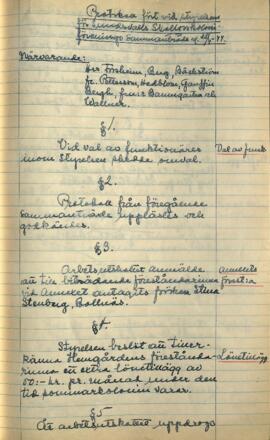 Protokoll fört vid styrelsens
för Ljusdals Skollovskoloni-
förenings sammanträde d. 26/5 -44.
Närvarande:
Hrr Forsheim, Berg, Bäckström
fr. Peterson, Hedblom,
Bergh, fruar Baumgarten och
Wallner.
§1.
Vid val av funktionärer
inom styrelsen skedde omval.
Val av funkt.
§2.
Protokoll från föregående
sammanträde upplästes och
godkändes.
§3.
Arbetsutskottet anmälde
att till biträdande föreståndarinna
vid Annexet antagits fröken Stina
Stenberg, Bollnäs.
Annexets
förest:a
§4.
Styrelsen beslöt att tiller-
känna Hemgårdens förestånda-
rinna en extra lönetillägg av
50:- kr. pr. månad under den
tid sommarkolonin varar.
Lönetillägg
§5
Åt arbetsutskottet uppdrogs